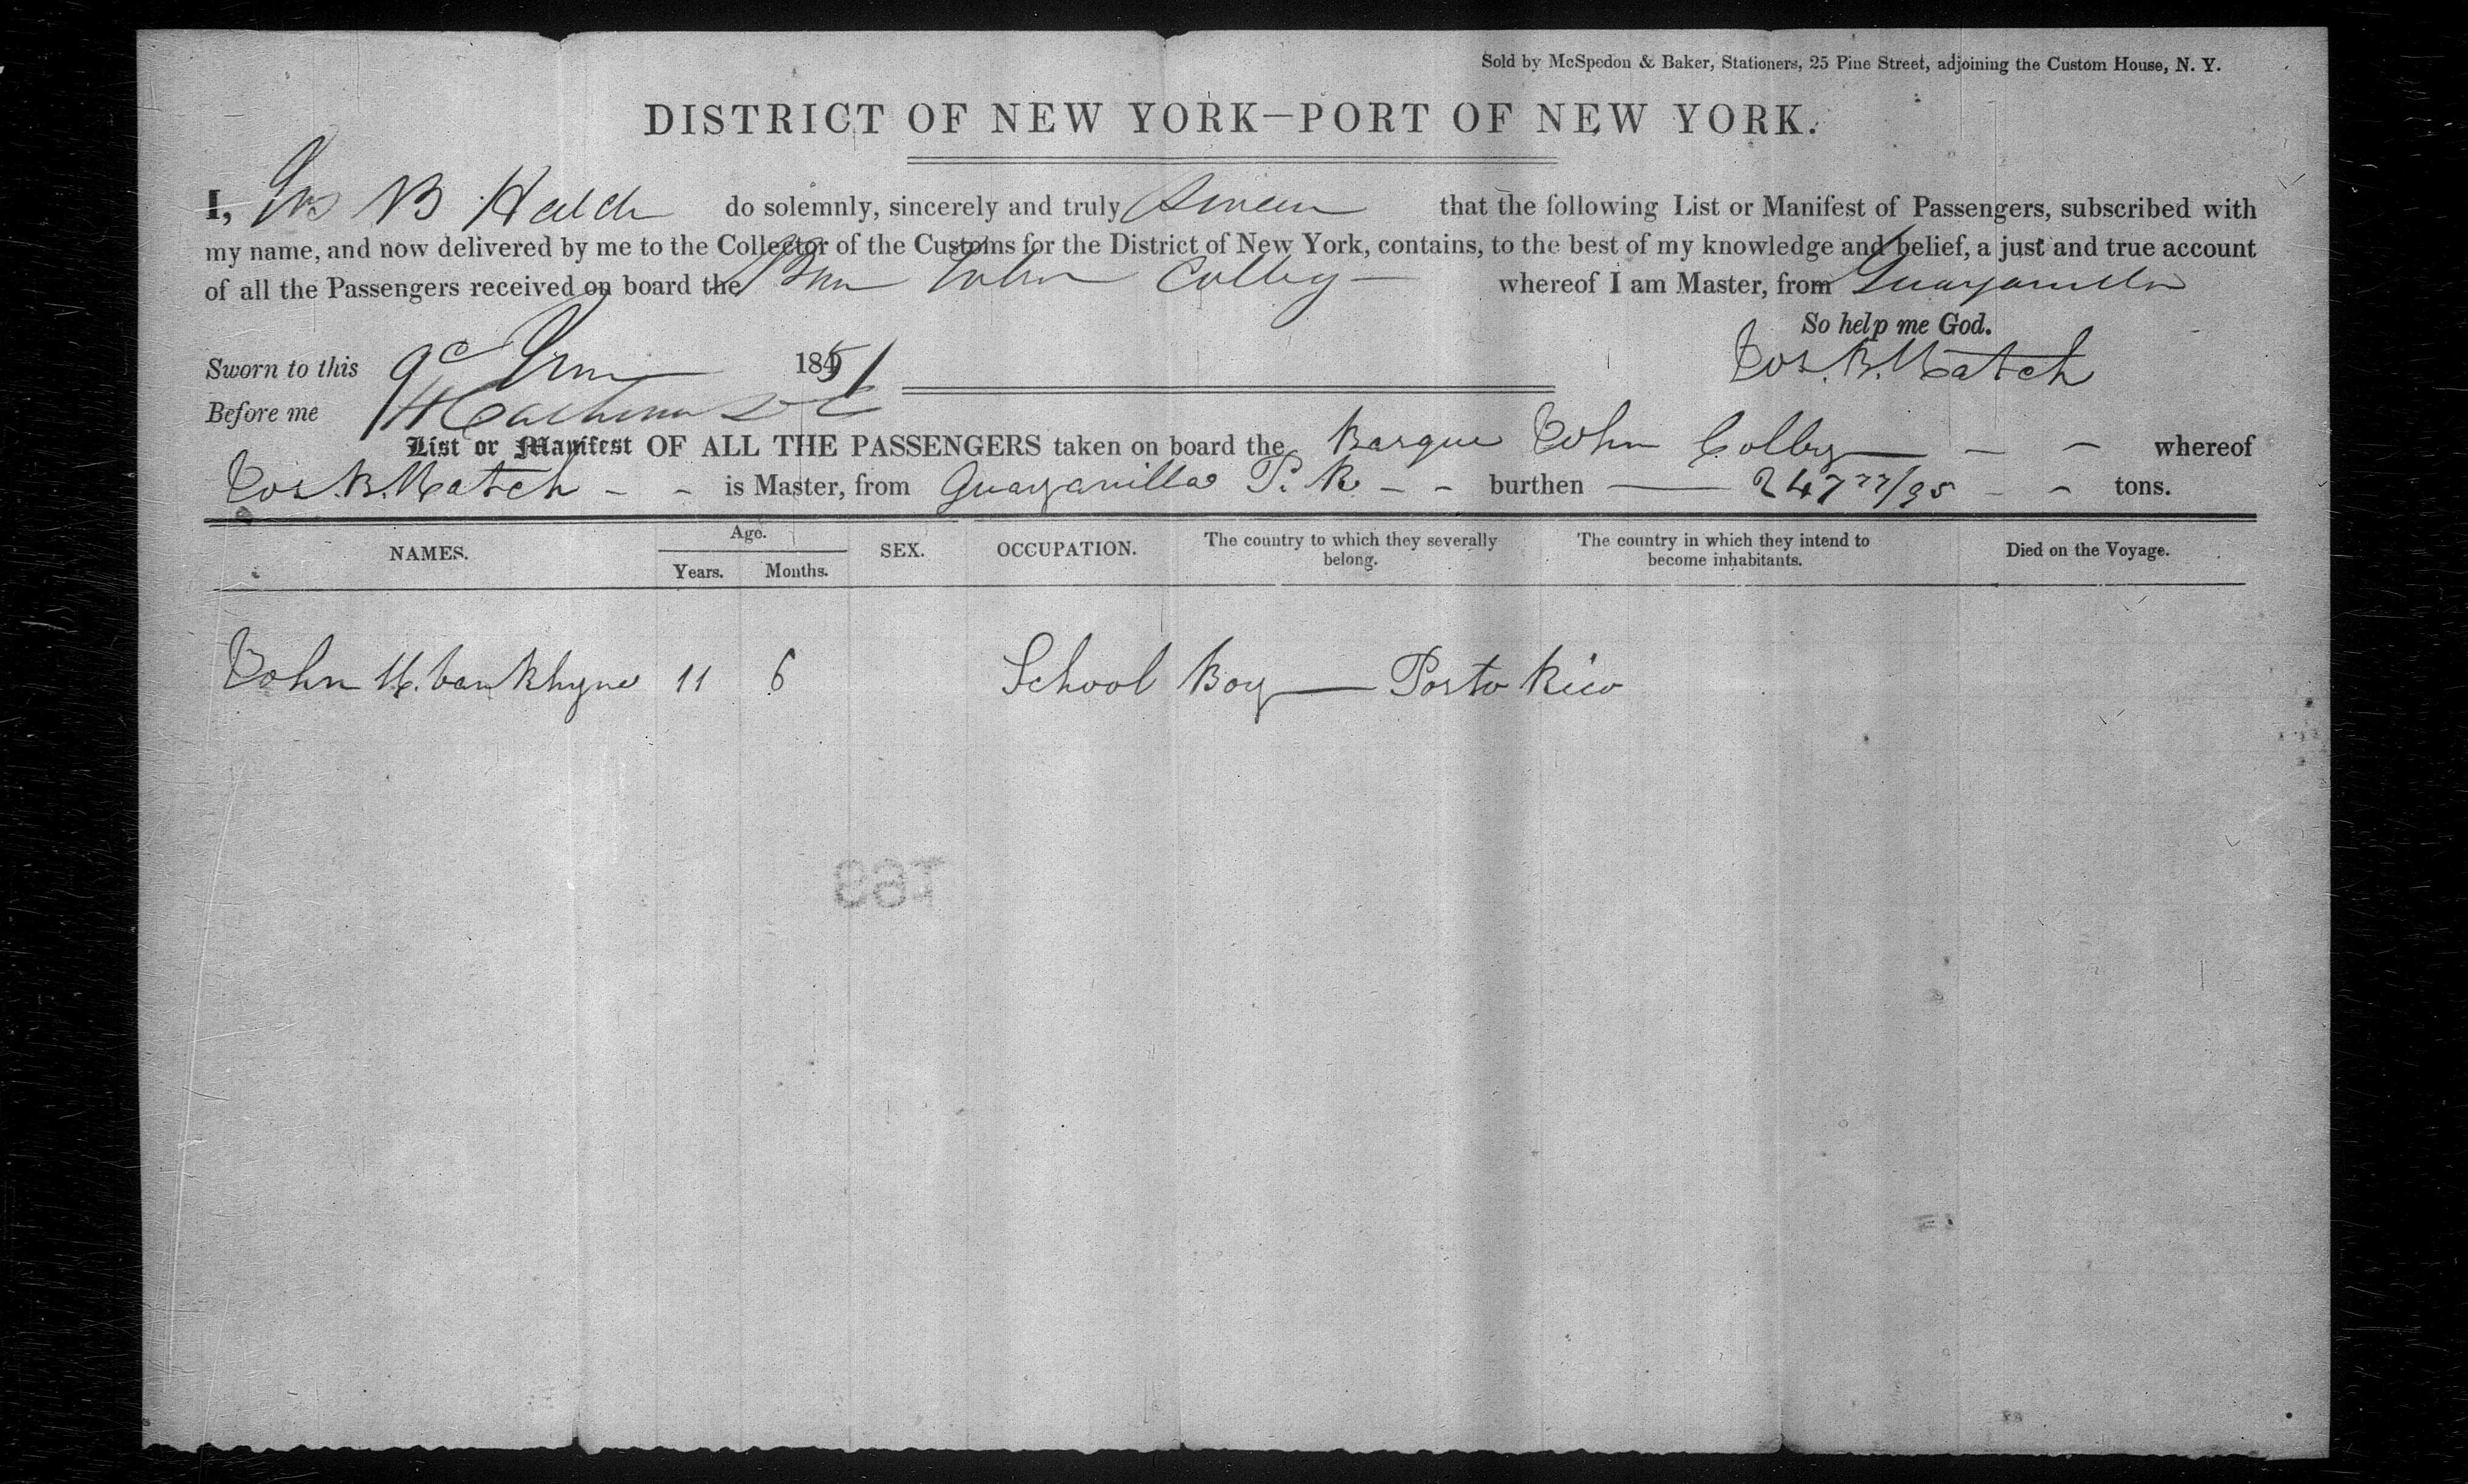 Sold by McSpedon & Baker, Stationers, 25 Pine Street, adjoining the Custom House, N. Y.
DISTRICT OF NEW YORK—PORT OF NEW YORK.
I, Jos B Hatch do solemnly, sincerely and truly swear that the following List or Manifest of Passengers, subscribed with
my name, and now delivered by me to the Collector of the Customs for the District of New York, contains, to the best of my knowledge and belief, a just and true account
of all the Passengers received on board the John Colby — whereof I am Master, from Guayanilla
So help me God.
Jos. B. Hatch
Sworn to this 9 1851
Before me
List or Manifest OF ALL THE PASSENGERS taken on board the Barque John Colby — - - whereof
Jos. B. Hatch - - is Master, from Guayanilla P. R. - - burthen — 247 77/95 - - tons.
NAMES. Age. Years. Months. SEX. OCCUPATION. The country to which they severally belong. The country in which they intend to become inhabitants. Died on the Voyage.
John H. van Rhyne 11 6 School Boy — Porto Rico
169